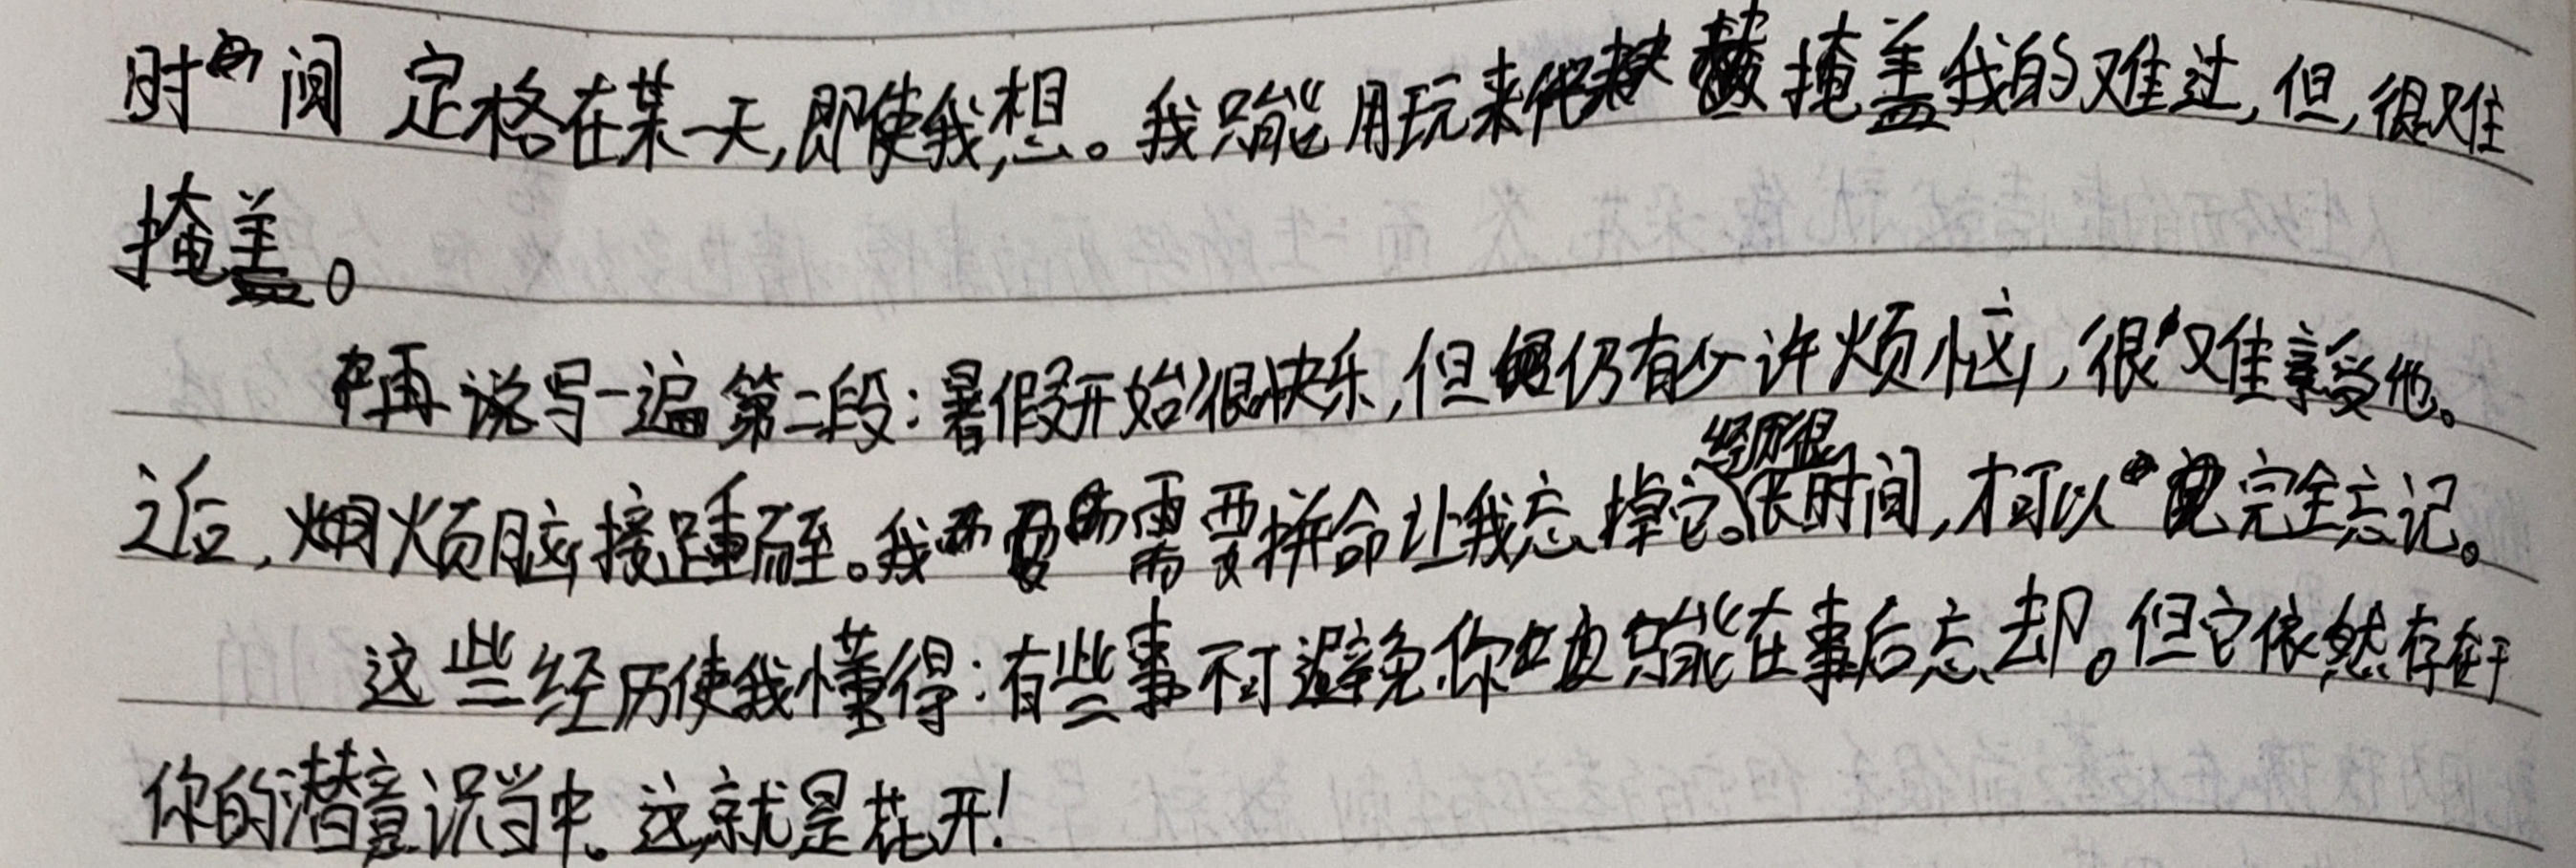 时间 定格在某一天,即使我,想。我只能用玩来掩盖我的难过,但,很难
掩盖。
再说写一遍第二段:暑假开始很快乐,但仍有少许烦恼,很难享受他。
近,烦脑接踵而至。我需要拼命让我忘掉它。经历很长时间,才可以完全忘记。
这些经历使我懂得:有些事不可避免你只能在事后忘却。但它依然存在于
你的潜意识当中。这就是花开!